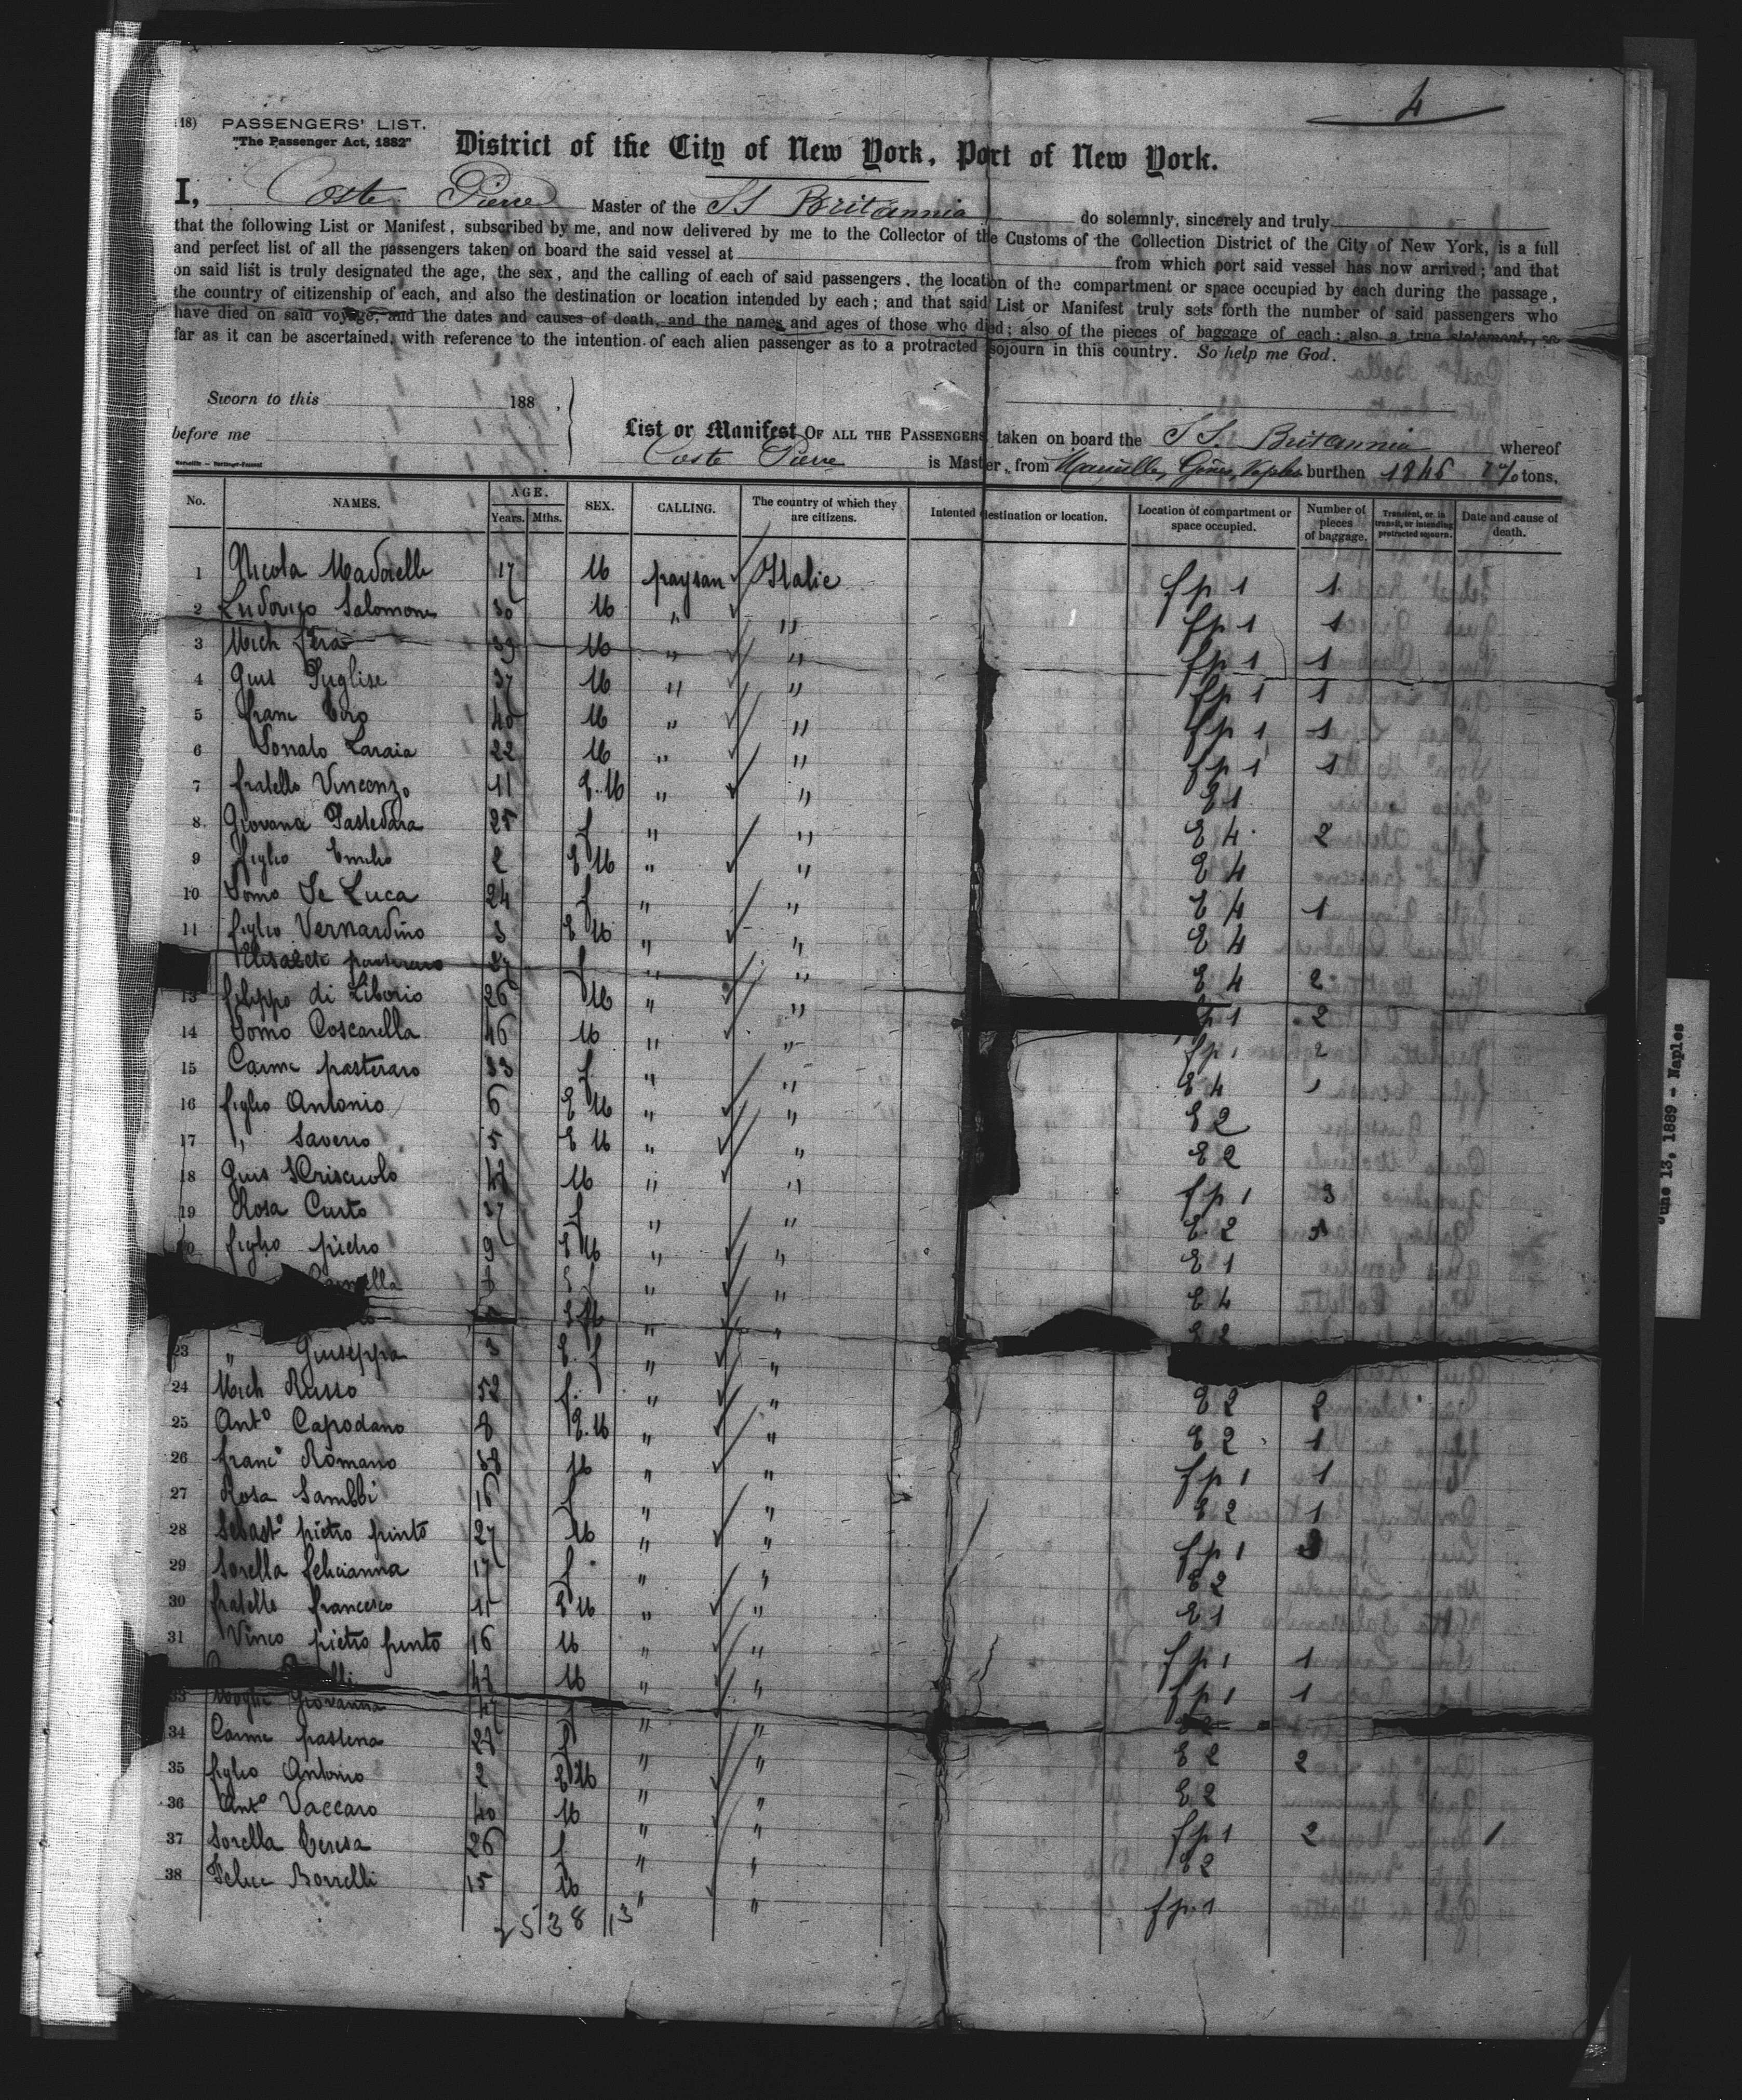 4
18) PASSENGERS' LIST.
"The Passenger Act, 1882"
District of the City of New York, Port of New York.
I, Coste Pierre Master of the SS Britannia do solemnly, sincerely and truly
that the following List or Manifest, subscribed by me, and now delivered by me to the Collector of the Customs of the Collection District of the City of New York, is a full
and perfect list of all the passengers taken on board the said vessel at from which port said vessel has now arrived; and that
on said list is truly designated the age, the sex, and the calling of each of said passengers, the location of the compartment or space occupied by each during the passage,
the country of citizenship of each, and also the destination or location intended by each; and that said List or Manifest truly sets forth the number of said passengers who
have died on said voyage, and the dates and causes of death, and the names and ages of those who died; also of the pieces of baggage of each; also a true statement, so
far as it can be ascertained, with reference to the intention of each alien passenger as to a protracted sojourn in this country. So help me God.
Sworn to this 188 .
before me
List or Manifest OF ALL THE PASSENGERS taken on board the SS. Britannia whereof
Coste Pierre is Master, from Marseille, Gênes, Naples burthen 1846 tons,
No. NAMES. AGE. Years. Mths. SEX. CALLING. The country of which they are citizens. Intented destination or location. Location of compartment or space occupied. Number of pieces of baggage. Transient, or in transit, or intending protracted sojourn. Date and cause of death.
1 Nicola Madorelli 17 M paysan Italie fp 1 1
2 Ludovico Salomone 30 M " " fp 1 1
3 Mich 39 M " " fp 1 1
4 Gius Puglise 37 M " " fp 1 1
5 Franc Ciro 40 M " " fp 1 1
6 Donato Laraia 22 M " " fp 1 1
7 fratello Vincenzo 11 E. M " " E 1
8 Giovana 25 f " " E 4 2
9 figlio Emilio 2 E M " " E 4
10 Domo De Luca 24 f " " E 4 1
11 figlio Vernardino 3 E M " " E 4
Elisabeth 37 f " " E 4 2
13 filippo di Liborio 26 M " " fp 1 2
14 Domo Coscarella 46 M " " fp 1 2
15 Carme pasteraro 33 f " " E 4 1
16 figlio Antonio 6 E M " " E 2
17 " Saverio 5 E M " " E 2
18 Gius M " " fp 1 3
19 Rosa Curto 37 f " " E 2
figlio pietro 9 E M " " E 1
E f " " E 4
E M " " E 2
23 " Giuseppa 3 E. f " "
24 Mich Russo 52 f. " " E 2 2
25 Anto Capodano 8 E. M " " E 2 1
26 franco Romano 38 M " " fp 1 1
27 Rosa 16 f " " E 2 1
28 Sebasto pietro pinto 27 M " " fp 1 3
29 Sorella felicianna 17 f " " E 2
30 fratello francesco 11 E M " " E 1
31 Vinco pietro pinto 16 M " " fp 1 1
M " " fp 1 1
33 Moglie Giovanna 47 f " " E 2
34 Carme pastena 27 f " " E 2 2
35 figlio Antonio 2 E M " " E 2
36 Anto Vaccaro 40 M " " fp 1 2 1
37 Sorella Teresa 26 f " " E 2
38 Felice Borrelli 15 M " " fp 1
25 38 13
June 13, 1889 - Naples